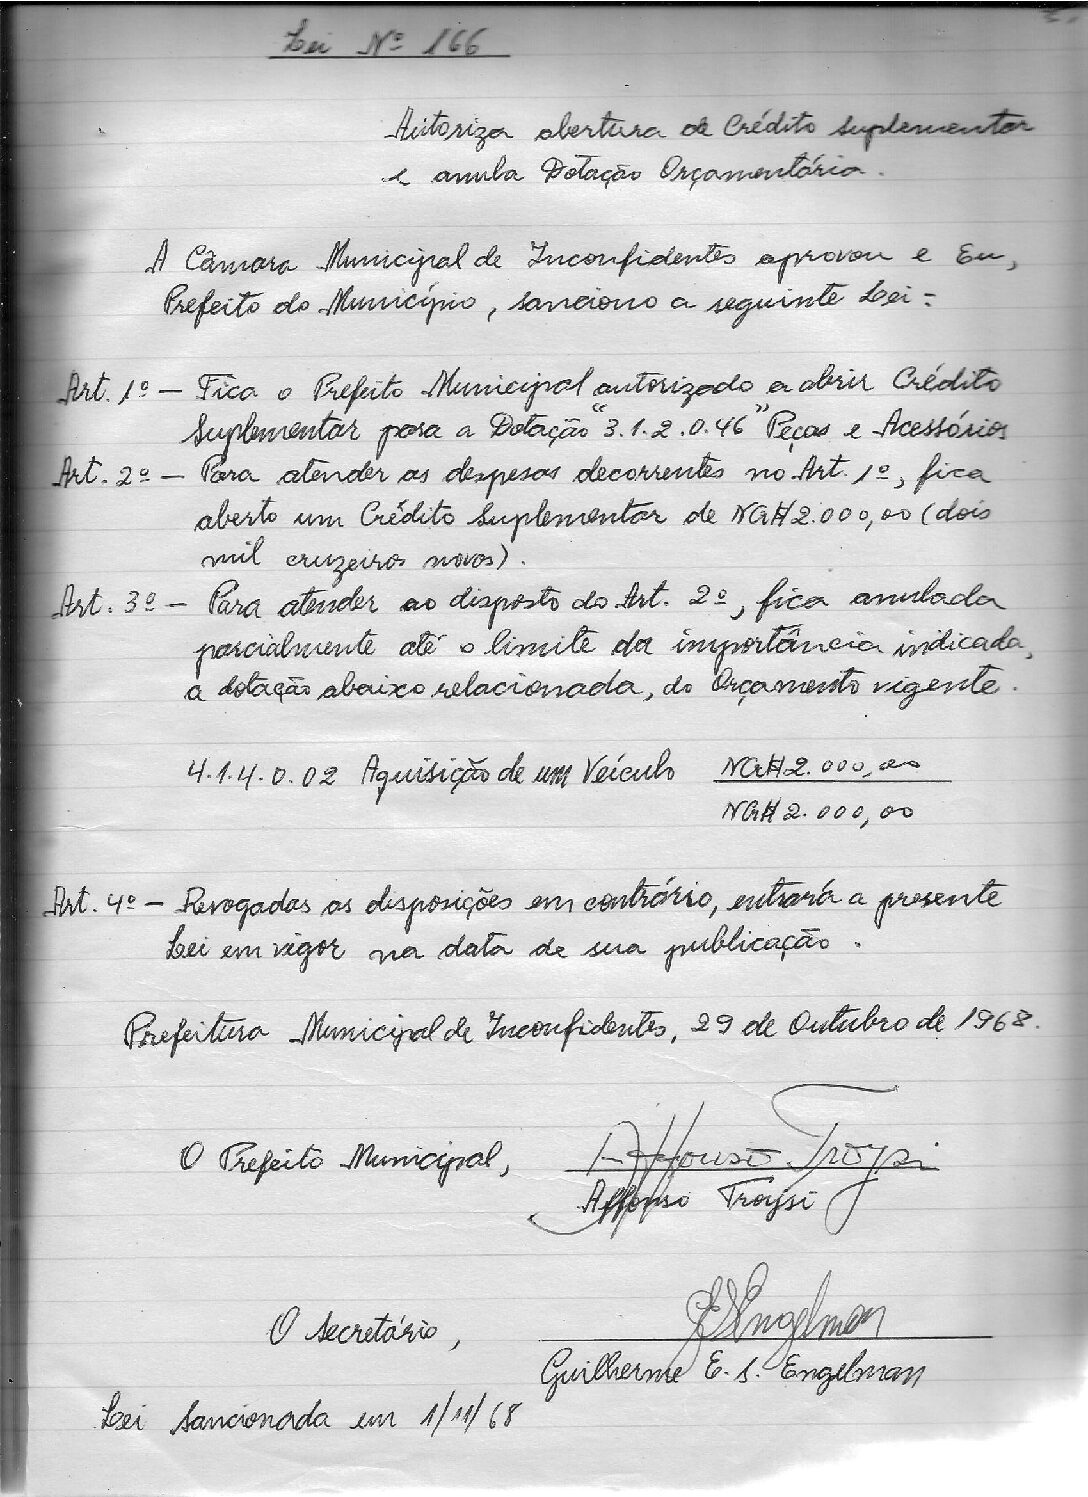 Lei Nº 166
Autoriza abertura de Crédito Suplementar
e anula Dotação Orçamentária.
A Câmara Municipal de Inconfidentes aprovou e Eu,
Prefeito do Município, sanciono a seguinte Lei:
Art. 1º - Fica o Prefeito Municipal autorizado a abrir Crédito
Suplementar para a Dotação "3.1.2.0.46" Peças e Acessórios
Art. 2º - Para atender as despesas decorrentes no Art. 1º, fica
aberto um Crédito Suplementar de NCr$ 2.000,00 (dois
mil cruzeiros novos).
Art. 3º - Para atender ao disposto do Art. 2º, fica anulada
parcialmente até o limite da importância indicada,
a dotação abaixo relacionada, do Orçamento vigente.
4.1.4.0.02 Aquisição de um Veículo NCr$ 2.000,00
NCr$ 2.000,00
Art. 4º - Revogadas as disposições em contrário, entrará a presente
Lei em vigor na data de sua publicação.
Prefeitura Municipal de Inconfidentes, 29 de Outubro de 1968.
O Prefeito Municipal, Affonso Troysi
Affonso Troysi
O Secretário, Engelman
Guilherme E. S. Engelman
Lei Sancionada em 1/11/68